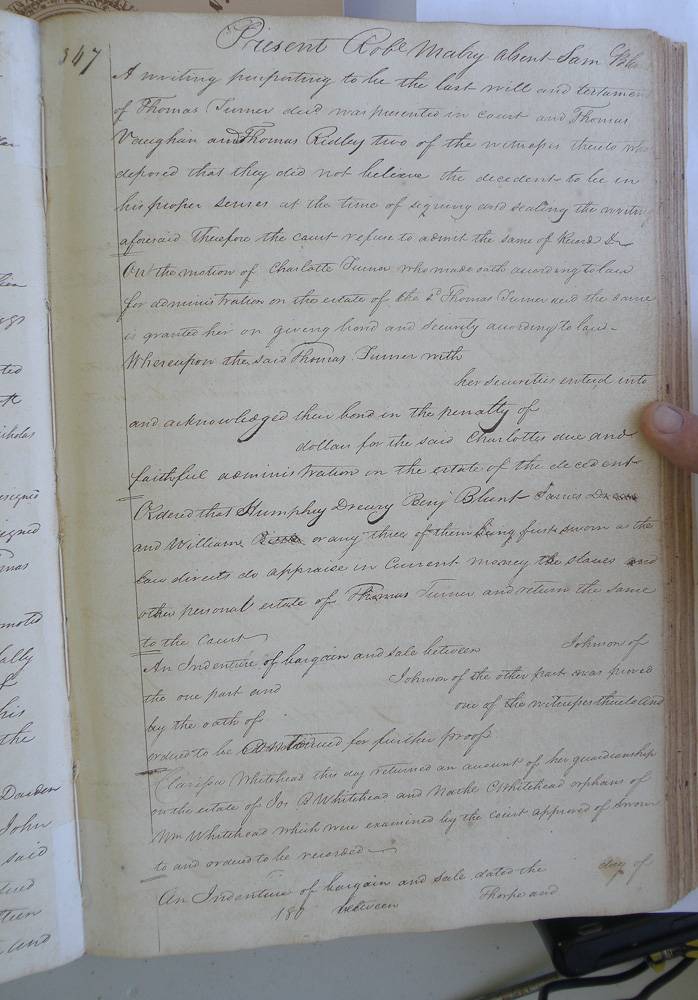 347
Present Robt Mabry absent Sam
A writing purporting to be the last will and testamen
of Thomas Turner decd was presented in court and Thomas
Vaughan and Thomas Ridley two of the witnesses thereto who
deposed that they did not believe the decedent to be in
his proper senses at the time of signing and sealing the writing
aforesaid Therefore the court refuse to admit the same of Record
On the motion of Charlotte Turner who made oath according to law
for administration on the estate of the sd Thomas Turner decd the same
is granted her on giving bond and security according to law
Whereupon the said Thomas Turner with
her securities entered into
and acknowledged their bond in the penalty of
dollars for the said Charlottes due and
faithful administration on the estate of the decedent
Ordered that Humphrey Drewry Benj Blunt James
and William or any three of them being first sworn as the
law directs do appraise in current money the slaves and
other personal estate of Thomas Turner and return the same
to the Court
An Indenture of bargain and sale between Johnson of
the one part and Johnson of the other part was proved
by the oath of one of the witnesses thereto and
ordered to be continued for further proof
Clarissa Whitehead this day returned an account of her guardianship
on the estate of Jos B Whitehead and Whitehead orphans of
Wm Whitehead which were examined by the court approved of sworn
to and ordered to be recorded
An Indenture of bargain and sale dated the day of
180 between Thorpe and
Darden
John
said
the
his
and